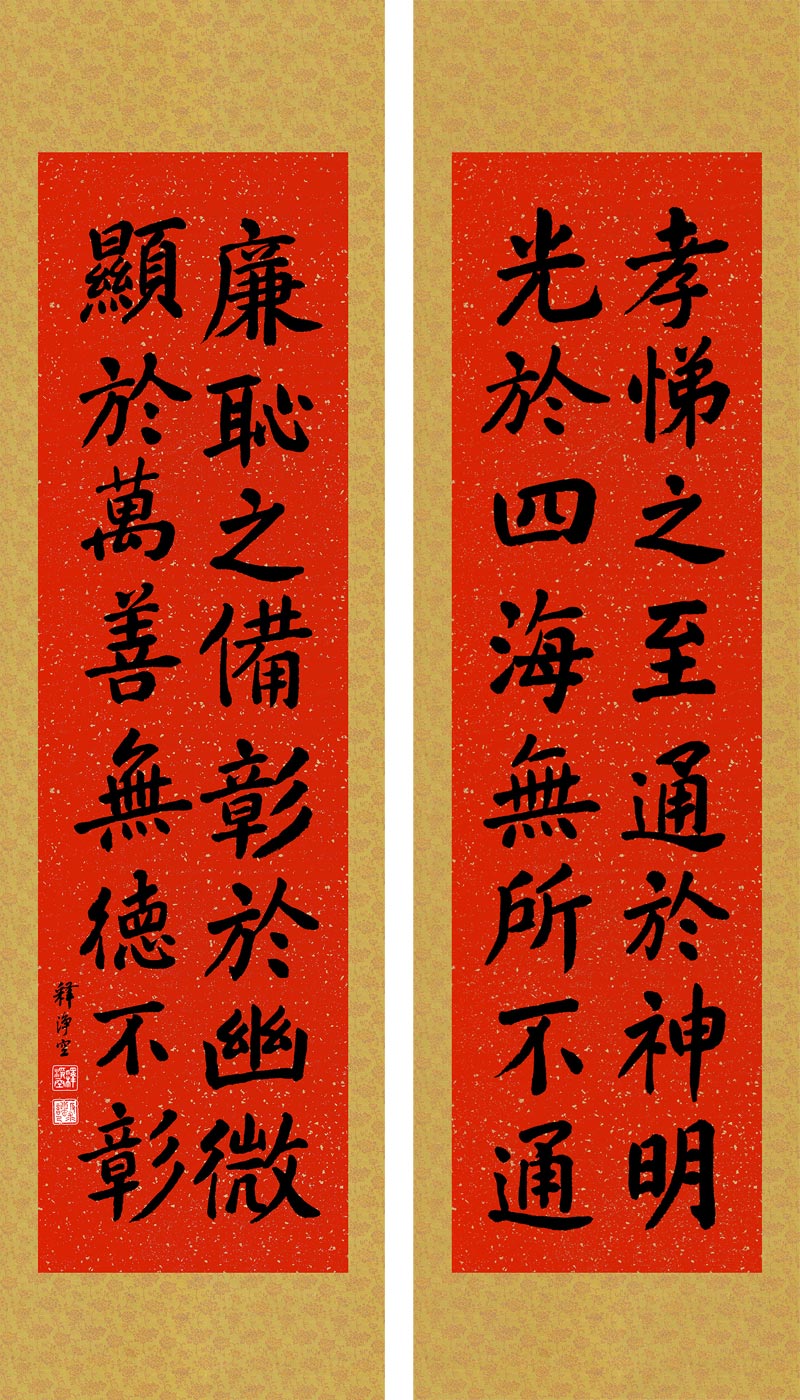 孝悌之至通於神明
光於四海無所不通
廉恥之備彰於幽微
顯於萬善無德不彰
釋淨空